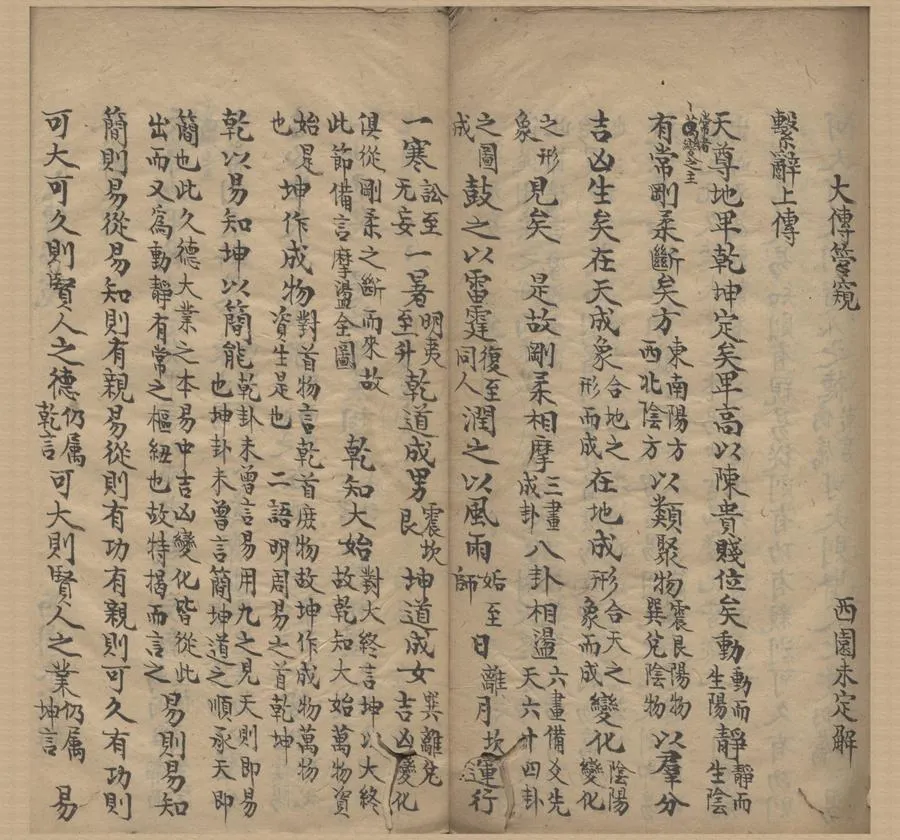 大傳管窺 西園未定解
繫辭上傳
天尊地卑乾坤定矣卑高以陳貴賤位矣動動而生陽靜靜而生陰
常者萬變之主
有常剛柔斷矣方東南陽方西北陰方以類聚物震艮陽物巽兌陰物以羣分
吉凶生矣在天成象合地之形而成在地成形合天之象而成變化陰陽變化
之形象見矣 是故剛柔相摩三畫成卦八卦相盪六畫備爻先天六十四卦
之圖成鼓之以雷霆復至同人潤之以風雨姤至師日離月坎運行
一寒訟至无妄一暑明夷至升乾道成男震坎艮坤道成女巽離兌吉凶變化
俱從剛柔之斷而來故此節備言摩盪全圖 乾知大始對大終言坤以大終故乾知大始萬物資
始是也坤作成物對首物言乾首庶物故坤作成物萬物資生是也 二語明周易之首乾坤
乾以易知坤以簡能乾卦未曾言易用九之見天則即易也坤卦未曾言簡坤道之順承天即
簡也此久德大業之本易中吉凶變化皆從此出而又爲動靜有常之樞紐也故特揭而言之易則易知
簡則易從易知則有親易從則有功有親則可久有功則
可大可久則賢人之德仍属乾言可大則賢人之業仍属坤言 易